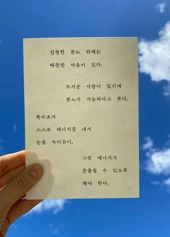 진정한 분노 뒤에는
따뜻한 마음이 있다.
뜨거운 사랑이 있기에
분노가 가능하다고 본다.
복수초가
스스로 에너지를 내서
눈을 녹이듯이,
그런 에너지가
분출될 수 있도록
해야 한다.